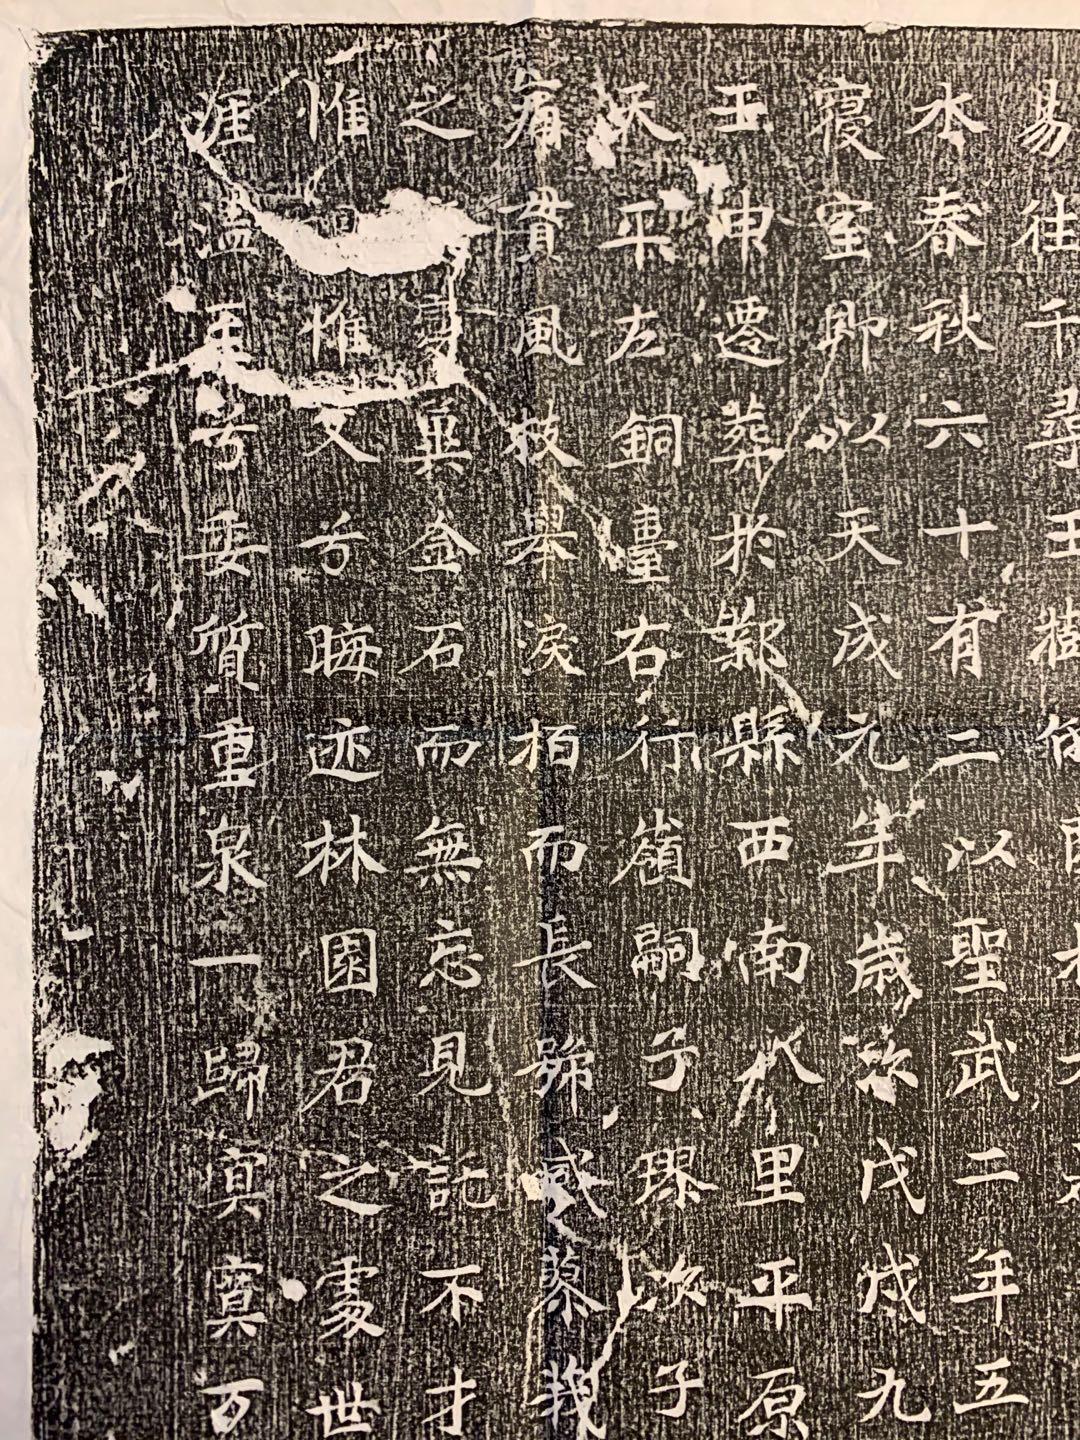 易往千尋玉樹
水春秋六十有二以聖武二年五
寝室即以天成元年歲次戊戌九
壬申遷葬於鄴縣西南八里平原
天平左銅臺右行嶺嗣子璆次子
痛貫風枝舉淚栢而長號感蓼莪
之變兾金石而無忘見託不才
惟惟文兮晦迹林園君之處世
涯溘至兮委質重泉一歸寘寞万